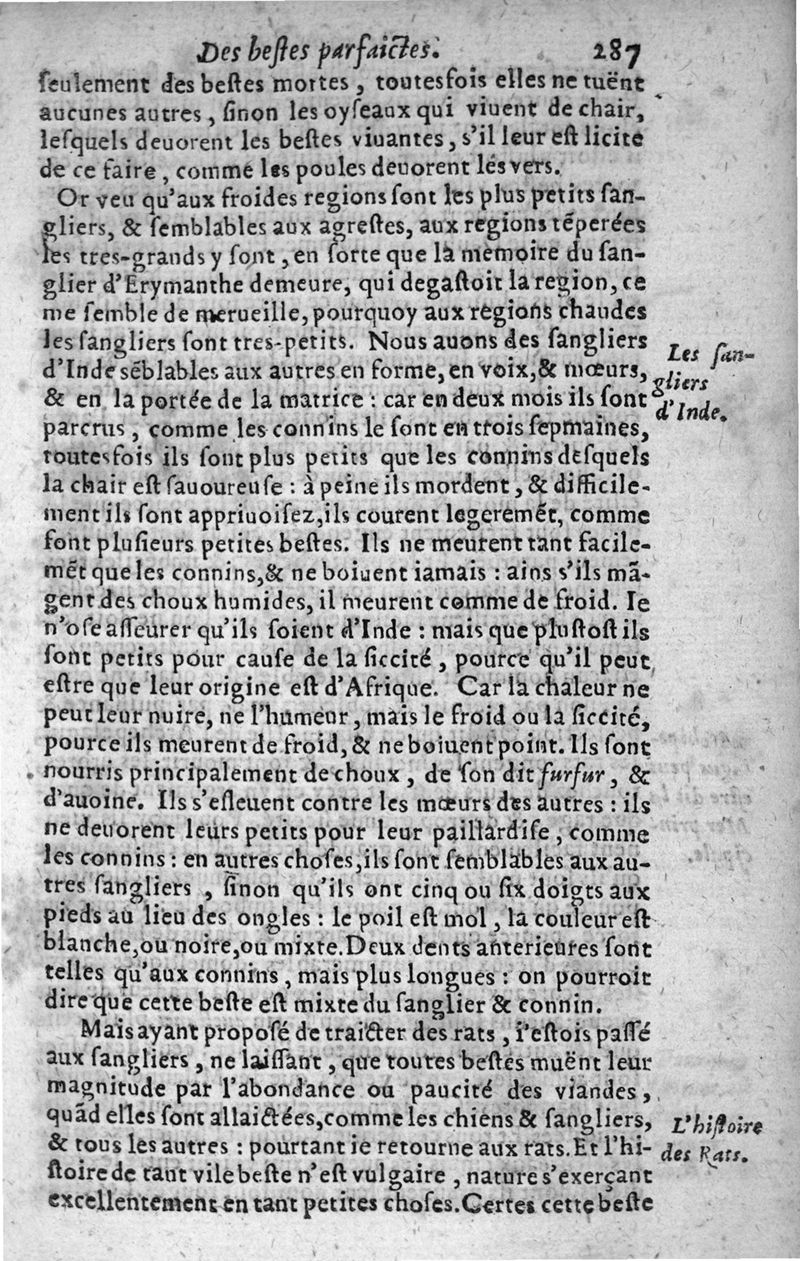 Des beſtes parfaictes. 287
ſeulement des beſtes mortes, toutesfois elles ne tuënt
aucunes autres, ſinon les oyſeaux qui viuent de chair,
leſquels deuorent les beſtes viuantes, s'il leur eſt licite
de ce faire, comme les poules deuorent les vers.
Or veu qu'aux froides regions ſont les plus petits ſan-
gliers, & ſemblables aux agreſtes, aux regions tẽperées
les tres-grands y ſont, en ſorte que la memoire du ſan-
glier d'Erymanthe demeure, qui degaſtoit la region, ce
me ſemble de merueille, pourquoy aux regions chaudes
les ſangliers ſont tres-petits. Nous auons des ſangliers
Les ſan-
d'Inde sẽblables aux autres en forme, en voix, & mœurs,
gliers
& en la portée de la matrice : car en deux mois ils ſont
d'Inde.
parcrus, comme les connins le ſont en trois ſepmaines,
toutesfois ils ſont plus petits que les connins deſquels
la chair eſt ſauoureuſe : à peine ils mordent, & difficile-
ment ils ſont appriuoiſez, ils courent legeremẽt, comme
font pluſieurs petites beſtes. Ils ne meurent tant facile-
mẽt que les connins, & ne boiuent iamais : ains s'ils mã-
gent des choux humides, il meurent comme de froid. Ie
n'oſe aſſeurer qu'ils ſoient d'Inde : mais que pluſtoſt ils
ſont petits pour cauſe de la ſiccité, pource qu'il peut
eſtre que leur origine eſt d'Afrique. Car la chaleur ne
peut leur nuire, ne l'humeur, mais le froid ou la ſiccité,
pource ils meurent de froid, & ne boiuent point. Ils ſont
nourris principalement de choux, de ſon dit furfur, &
d'auoine. Ils s'eſleuent contre les mœurs des autres : ils
ne deuorent leurs petits pour leur paillardiſe, comme
les connins : en autres choſes, ils ſont ſemblables aux au-
tres ſangliers, ſinon qu'ils ont cinq ou ſix doigts aux
pieds au lieu des ongles : le poil eſt mol, la couleur eſt
blanche, ou noire, ou mixte. Deux dents anterieures ſont
telles qu'aux connins, mais plus longues : on pourroit
dire que cette beſte eſt mixte du ſanglier & connin.
Mais ayant propoſé de traicter des rats, i'eſtois paſſé
aux ſangliers, ne laiſſant, que toutes beſtes muënt leur
magnitude par l'abondance ou paucité des viandes,
quãd elles ſont allaictées, comme les chiens & ſangliers,
L'hiſtoire
& tous les autres : pourtant ie retourne aux rats. Et l'hi-
des Rats.
ſtoire de tant vile beſte n'eſt vulgaire, nature s'exerçant
excellentement en tant petites choſes. Certes cette beſte